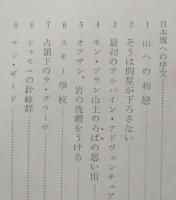 日本版への序文
1 山への初恋
2 そうは問屋が下ろさない
3 最初のアルパイン・アドヴェンチュア
4 モン・ブラン山上のろばの思い出
5 オアザン、岩の洗礼をうける
6 スキー學校
7 占領下のラ・グラーヴ
8 シャモニの針峰群
9 サン・ギード